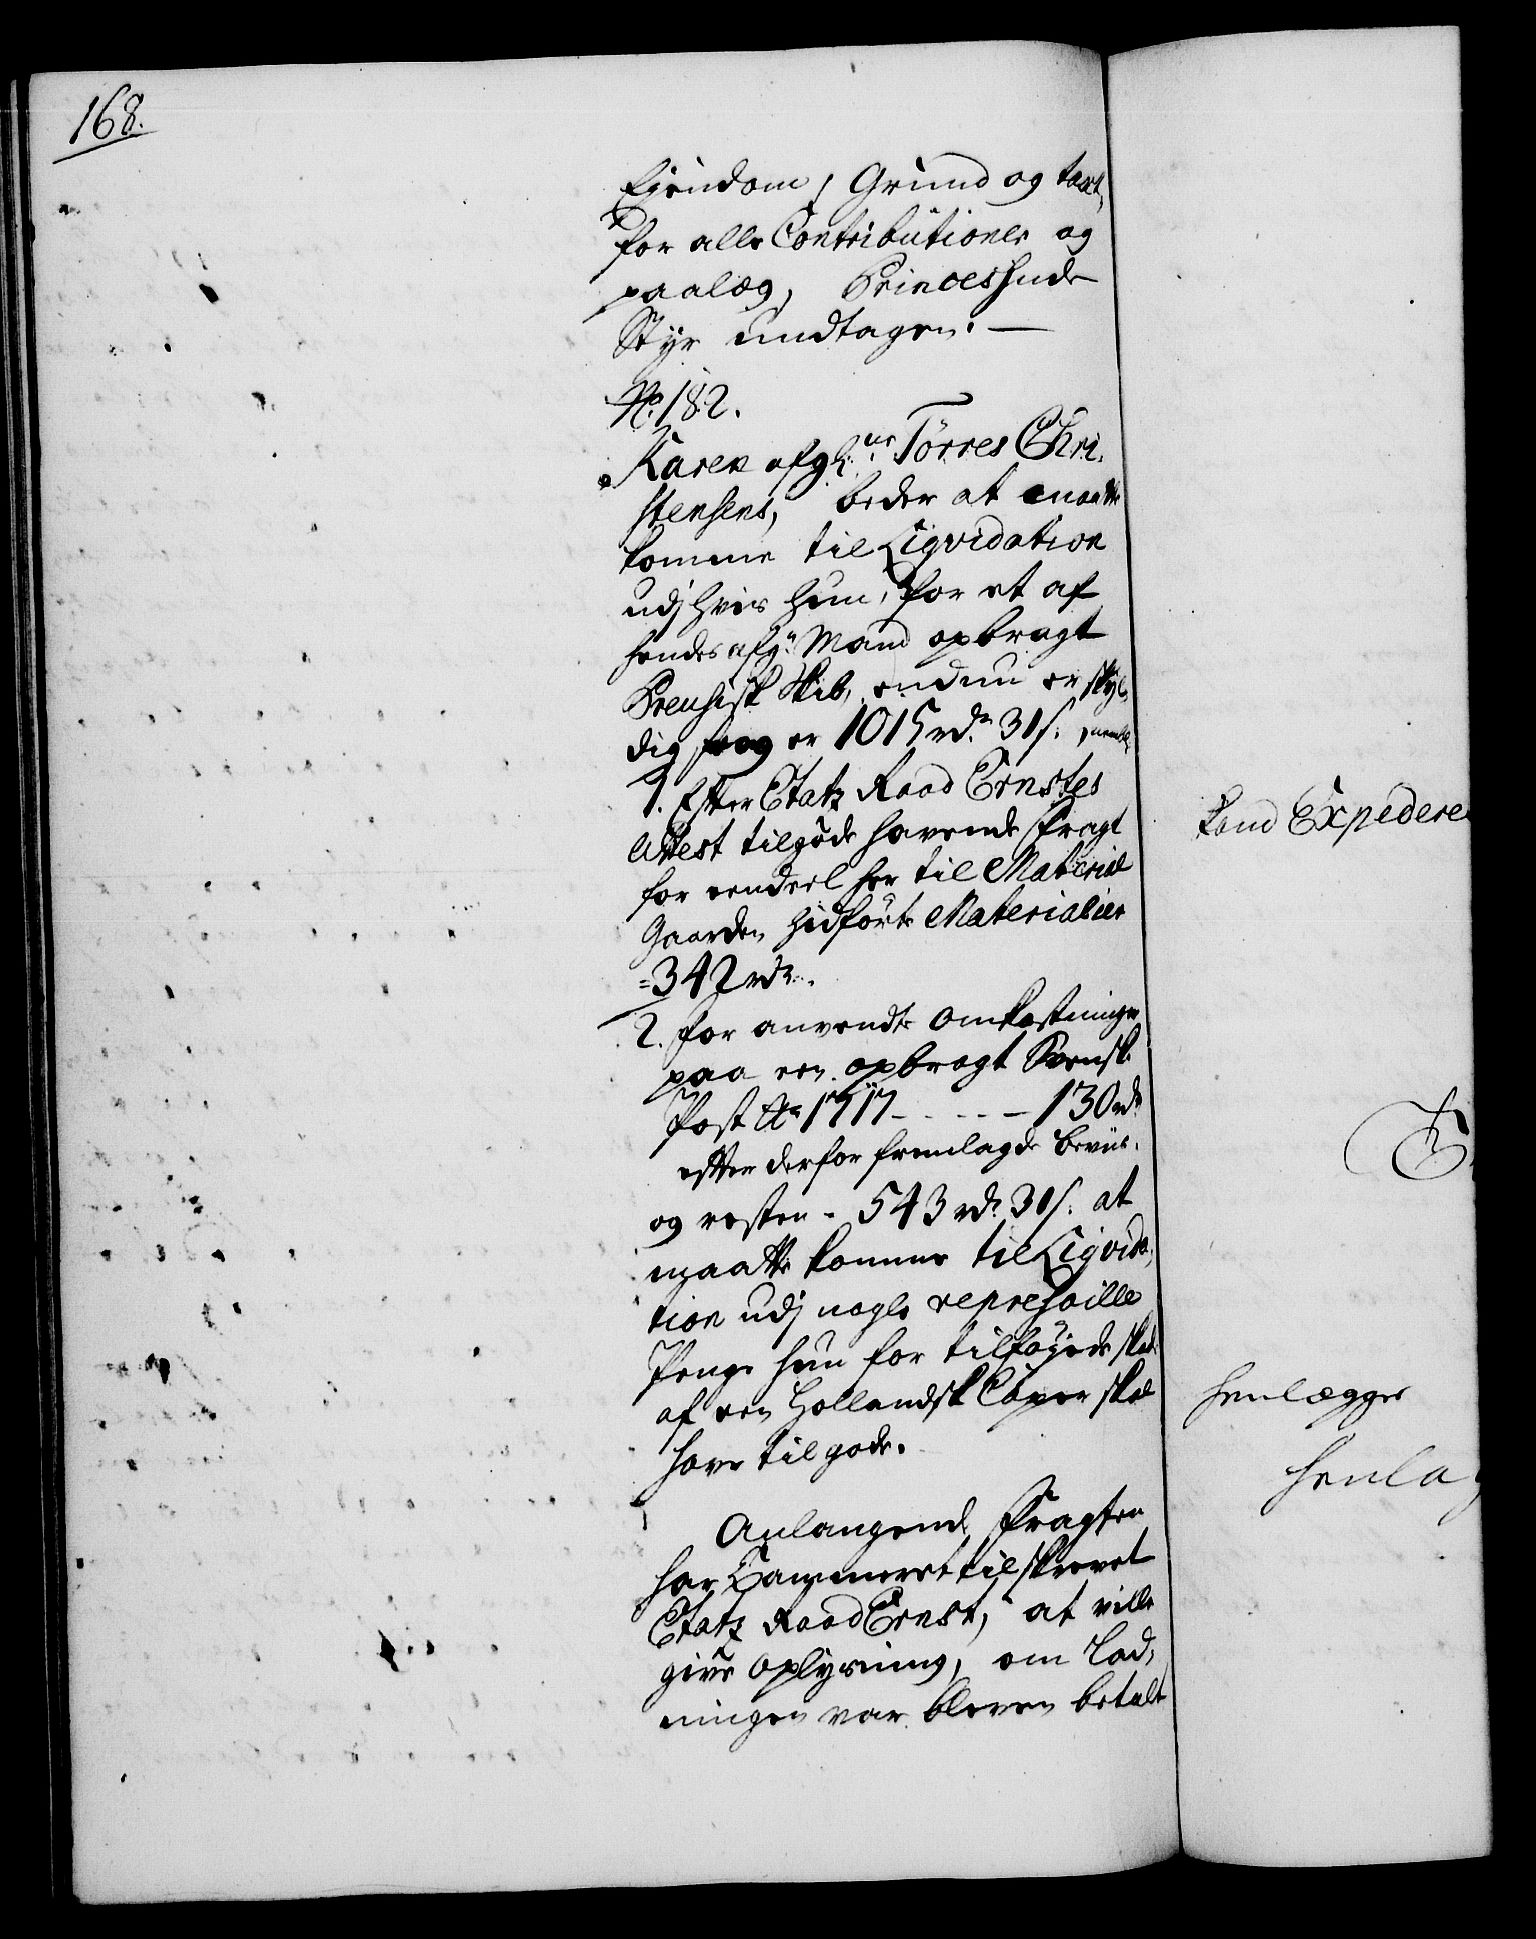 168.
Eiendom, Grund og taxt,
for alle Contributioner og
paalæg, Princes hude
Styr undtagen. —
No. 182.
Karen afg: Tørres Chri-
stensens, beder at maatte
komme til Liqvidation
udj hvis hun, for et af
hendes afg: Mand opbragt
Preusisk Skib, endnu er skyl-
dig er 1015 rdr 31 s:
1. Efter Etatz Raad Ernstes
Attest tilgode havende Fragt
for eendeel her til Material
Gaarden hidførte Materialier
= 342 rdr.
2. for anvendte omkostninger
paa een opbragt Svensk
Post Ao 1717 - - - - - 130 rdr
efter derfor fremlagde beviis.
og resten - 543 rdr 31 s. at
maatte komme til Liqvida-
tion udj nogle represaille
Penge hun for tilføyede skade
af een Hollandsk Caper skal
have til gode.
Anlangende Fragten
har Cammeret tilskrevet
Etatz Raad Ernst, at ville
give Oplysning, om Lad-
ningen var bleven betalt
kand Expedere
henlægges
henla